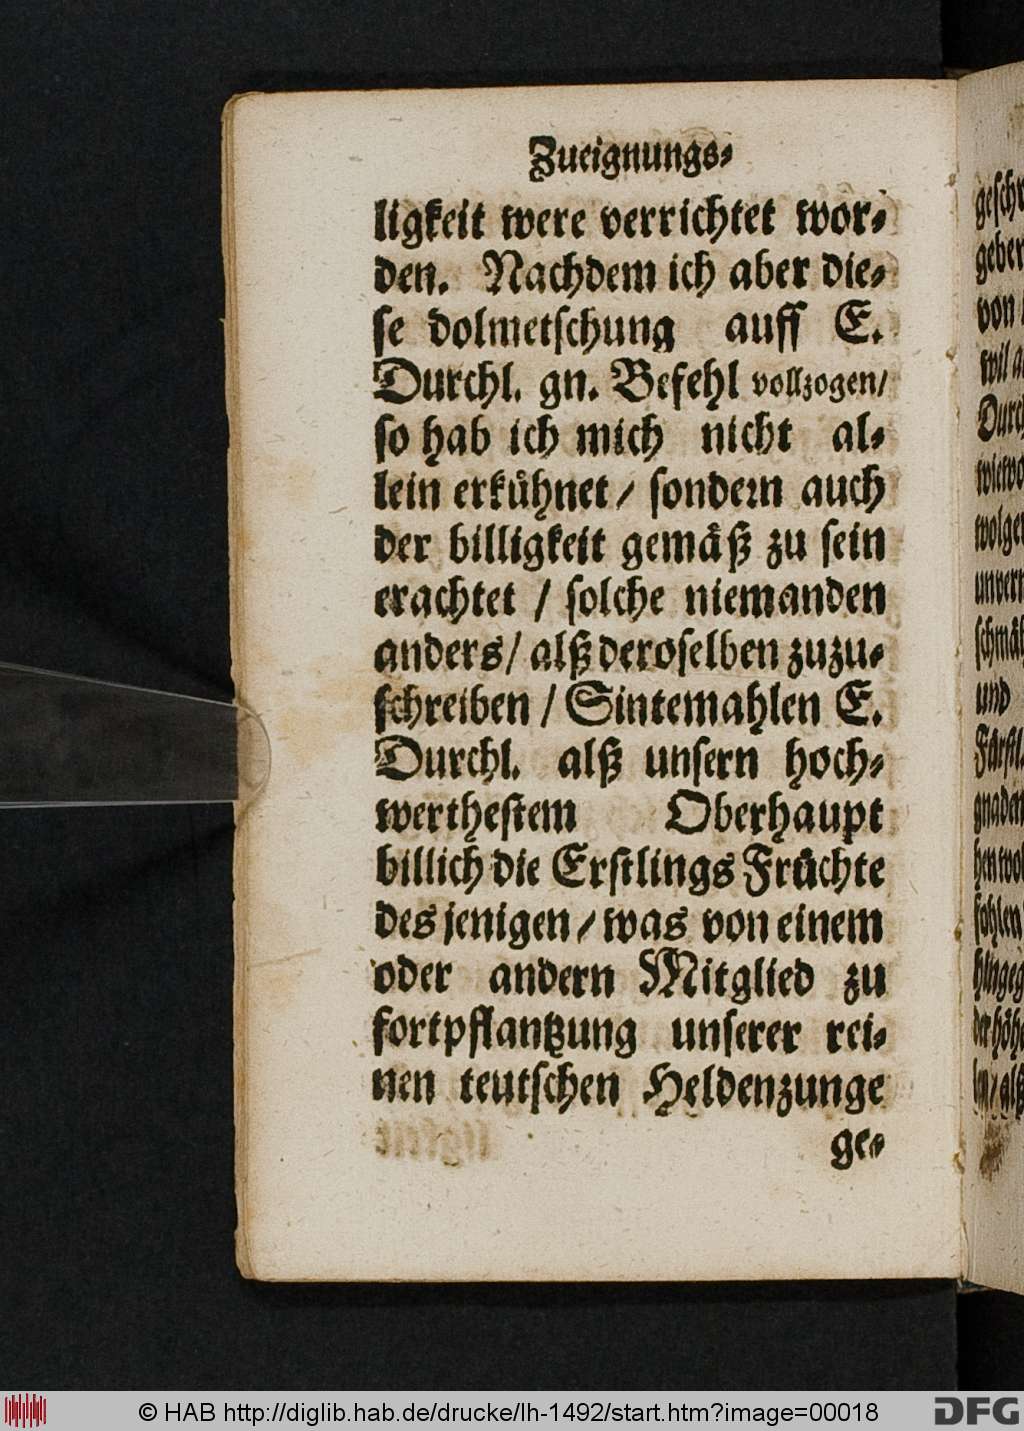 Zueignungs-
ligkeit were verrichtet wor-
den. Nachdem ich aber die-
se dolmetschung auff E.
Durchl. gn. Befehl vollzogen/
so hab ich mich nicht al-
lein erkühnet / sondern auch
der billigkeit gemäß zu sein
erachtet / solche niemanden
anders / alß deroselben zuzu-
schreiben / Sintemahlen E.
Durchl. alß unsern hoch-
werthestem Oberhaupt
billich die Erstlings Früchte
des jenigen / was von einem
oder andern Mitglied zu
fortpflantzung unserer rei-
nen teutschen Heldenzunge
ge-
© HAB http://diglib.hab.de/drucke/lh-1492/start.htm?image=00018
DFG